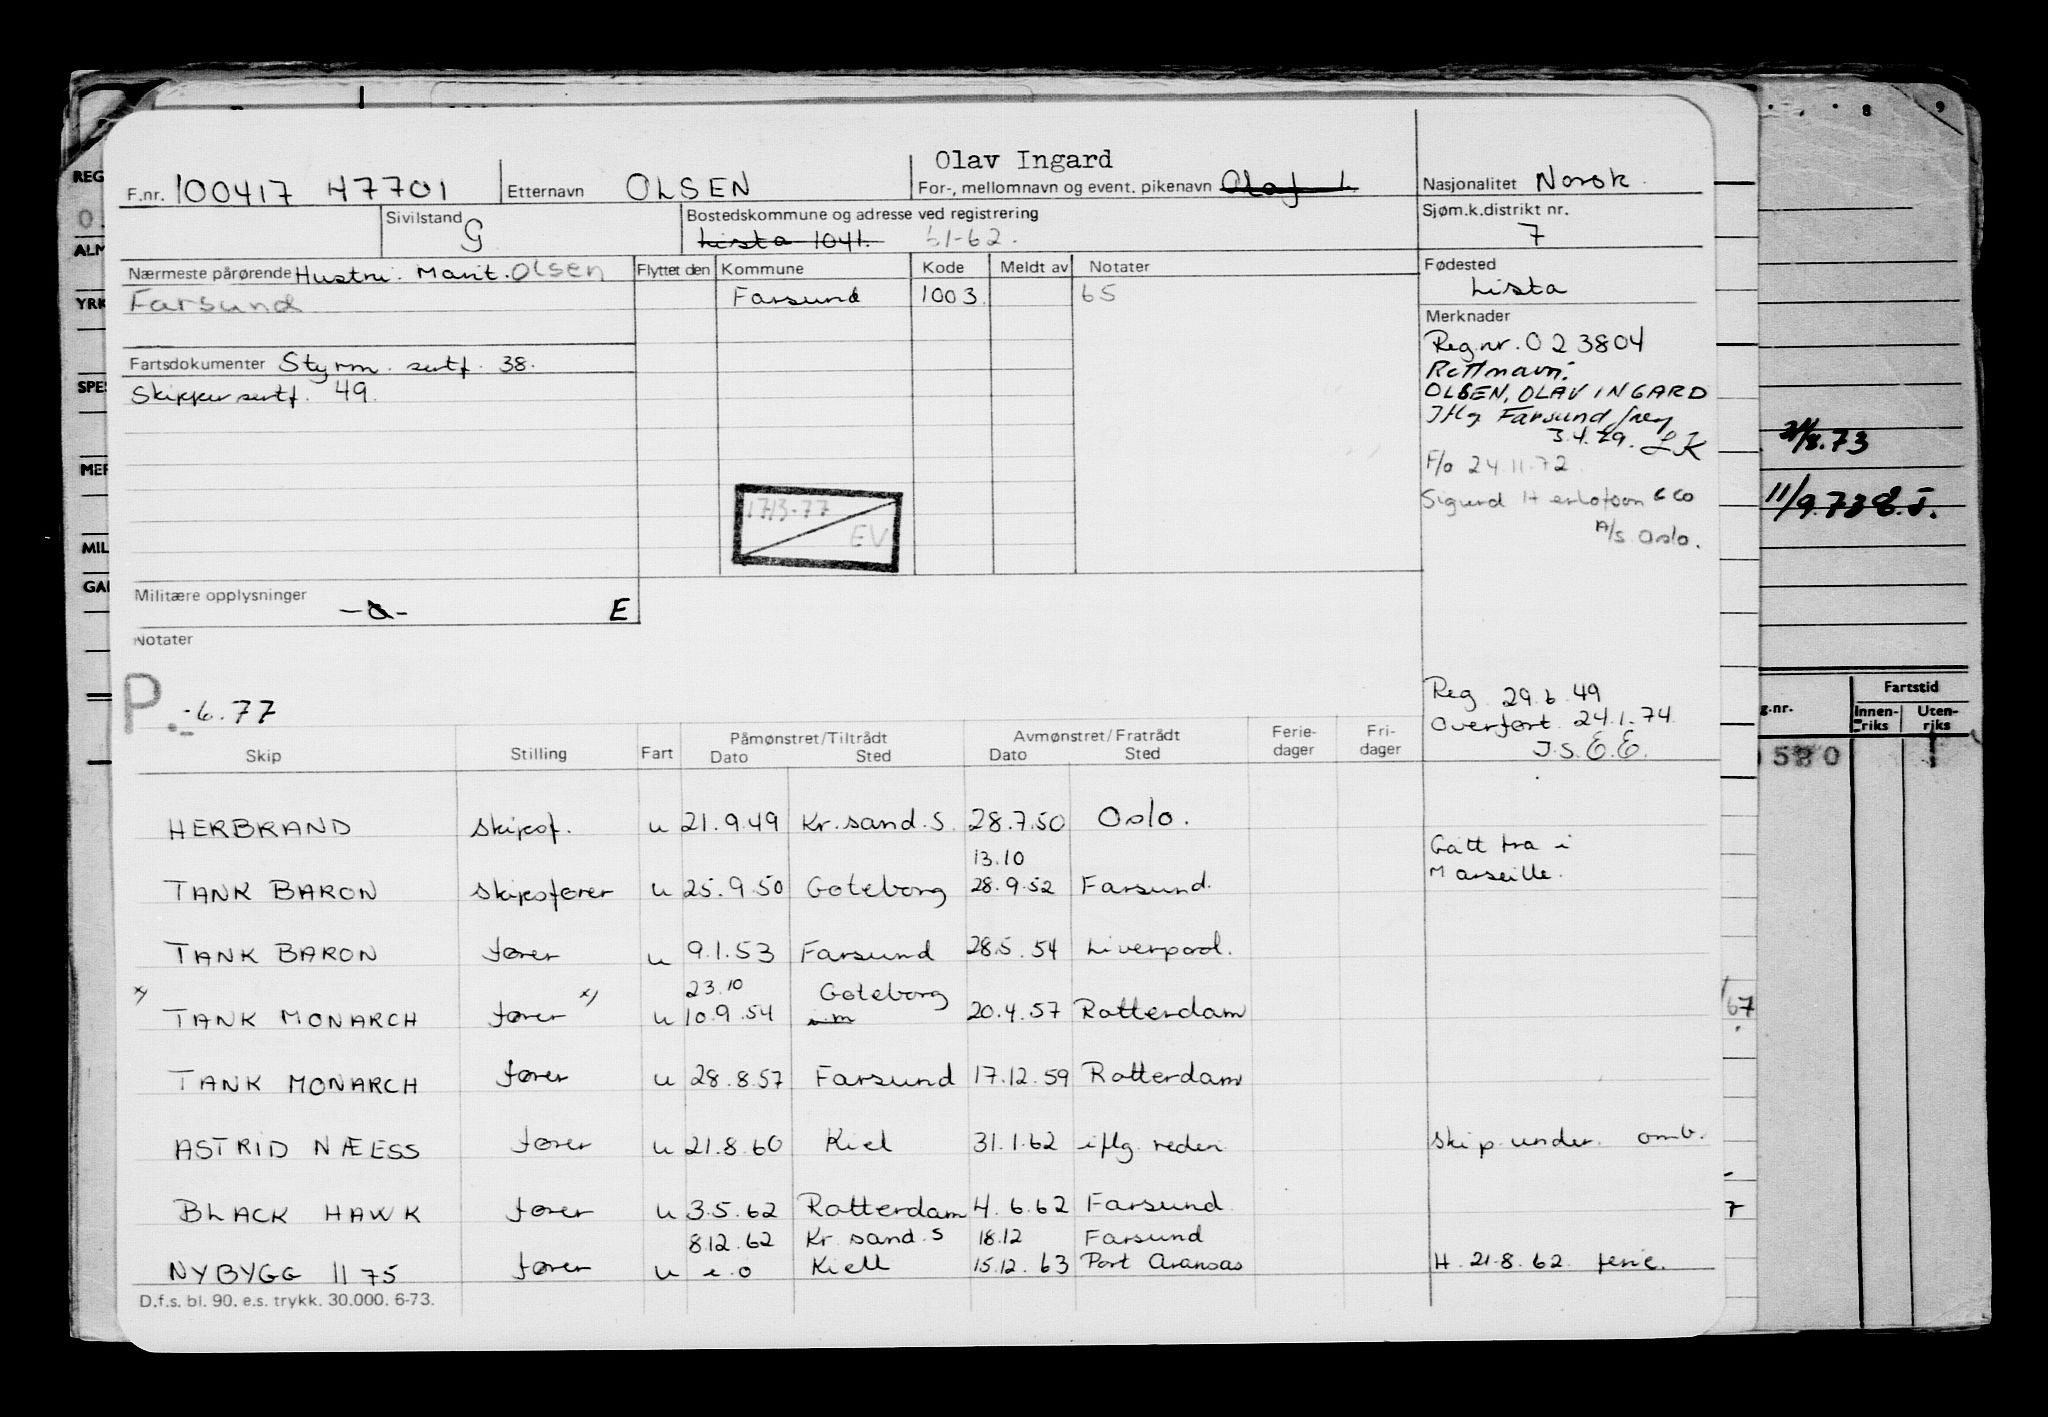 Olav Ingard
F.nr. 100417 47701 Etternavn OLSEN For-, mellomnavn og event. pikenavn Olaf I. Nasjonalitet Norsk.
Sivilstand G Bostedskommune og adresse ved registrering Sjøm.k.distrikt nr.
Lista 1041. 61-62. 7
Nærmeste pårørende Hustru. Marit. Olsen Flyttet den Kommune Kode Meldt av Notater Fødested
Farsund Farsund 1003 65 Lista
Merknader
Reg.nr. 023804
Rett navn:
OLSEN, OLAV INGARD
Iflg. Farsund freg
3.4.79. LK
Fartsdokumenter Styrm. sertf. 38.
Skippersertf. 49.
F/o 24.11.72.
Sigurd Herlofson & Co
A/S Oslo.
17/3-77
EV
Militære opplysninger E
Notater
P. -6.77
Reg 29.6.49
Overført 24.1.74
J.S. E.E.
Skip Stilling Fart Påmønstret/Tiltrådt Dato Sted Avmønstret/Fratrådt Dato Sted Ferie- dager Fri- dager
HERBRAND skipsf. u 21.9.49 Kr.sand.S. 28.7.50 Oslo.
13.10 Gått fra i
TANK BARON skipsfører u 25.9.50 Gøteborg 28.9.52 Farsund. Marseille.
TANK BARON fører u 9.1.53 Farsund 28.5.54 Liverpool.
23.10 Gøteborg
x) TANK MONARCH fører x) u 10.9.54 i.m 20.4.57 Rotterdam
TANK MONARCH fører u 28.8.57 Farsund 17.12.59 Rotterdam
ASTRID NÆESS fører u 21.8.60 Kiel 31.1.62 iflg. rederi skip under. omb.
BLACK HAWK fører u 3.5.62 Rotterdam 4.6.62 Farsund
8.12.62 Kr.sand.S 18.12 Farsund
NYBYGG 1175 fører u e.o Kiell 15.12.63 Port Aransas H. 21.8.62 ferie.
D.f.s. bl. 90. e.s. trykk. 30.000. 6-73.
REG
0.
ALM
YRK
SPES
MER
MIL
GAI
8 9
21/8.73
11/9.73 E.J.
Fartstid
g.nr. Innen- riks Uten- riks
580
/67
7